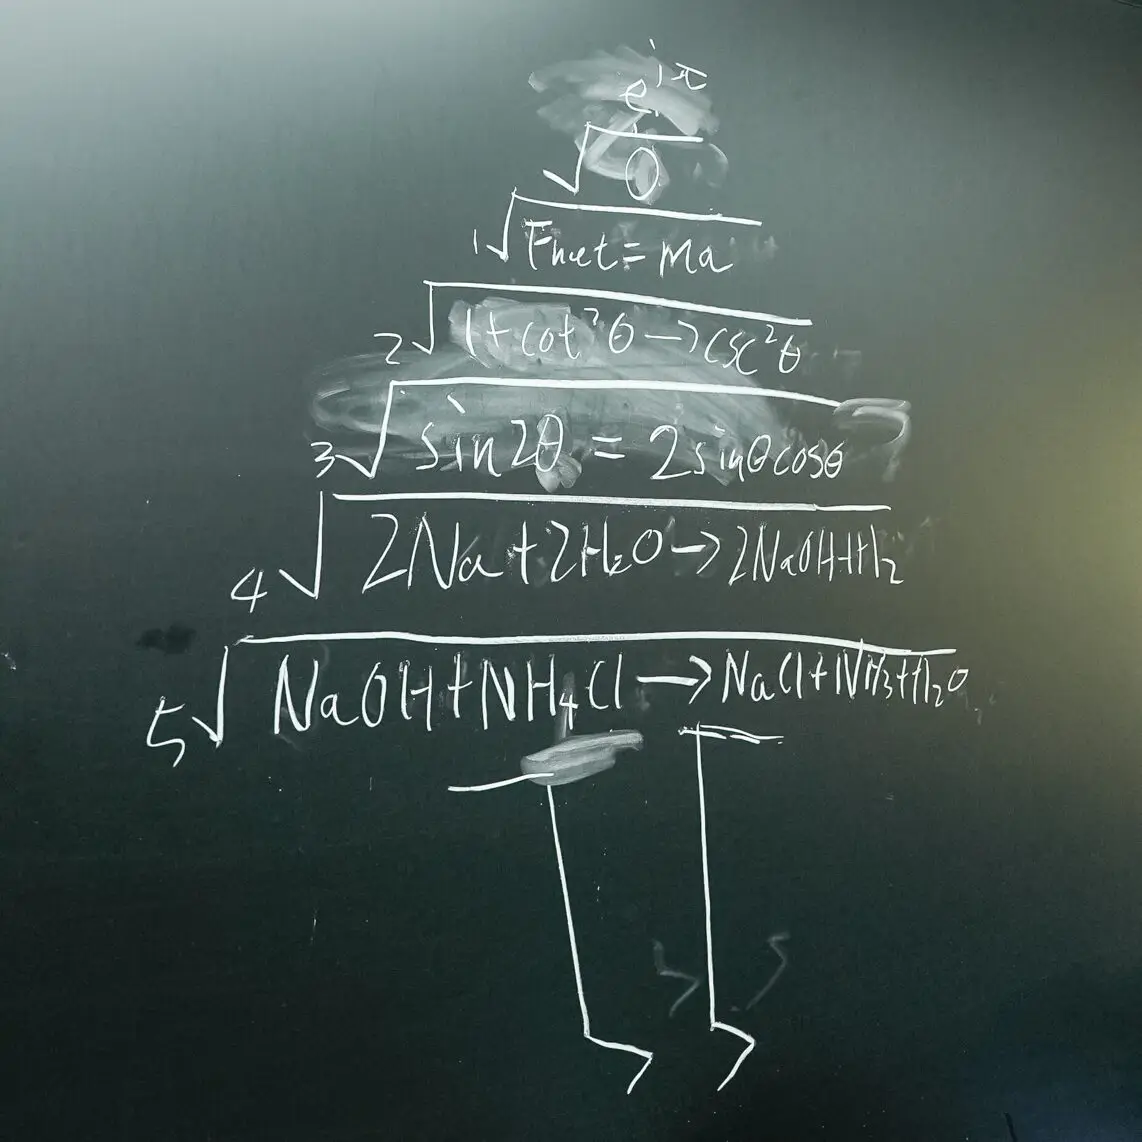 e^{iπ}
√0
1√Fnet = ma
2√1+cot²θ→csc²θ
3√sin2θ = 2sinθcosθ
4√2Na+2H₂O→2NaOH+H₂
5√NaOH+NH₄Cl→NaCl+NH₃+H₂O